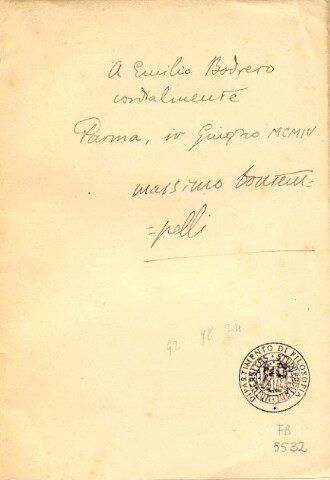 A Emilio Bodrero
cordialmente
Parma, IV Giugno MCMIV
massimo bontem=
=pelli
DIPARTIMENTO DI FILOSOFIA
FB
5532